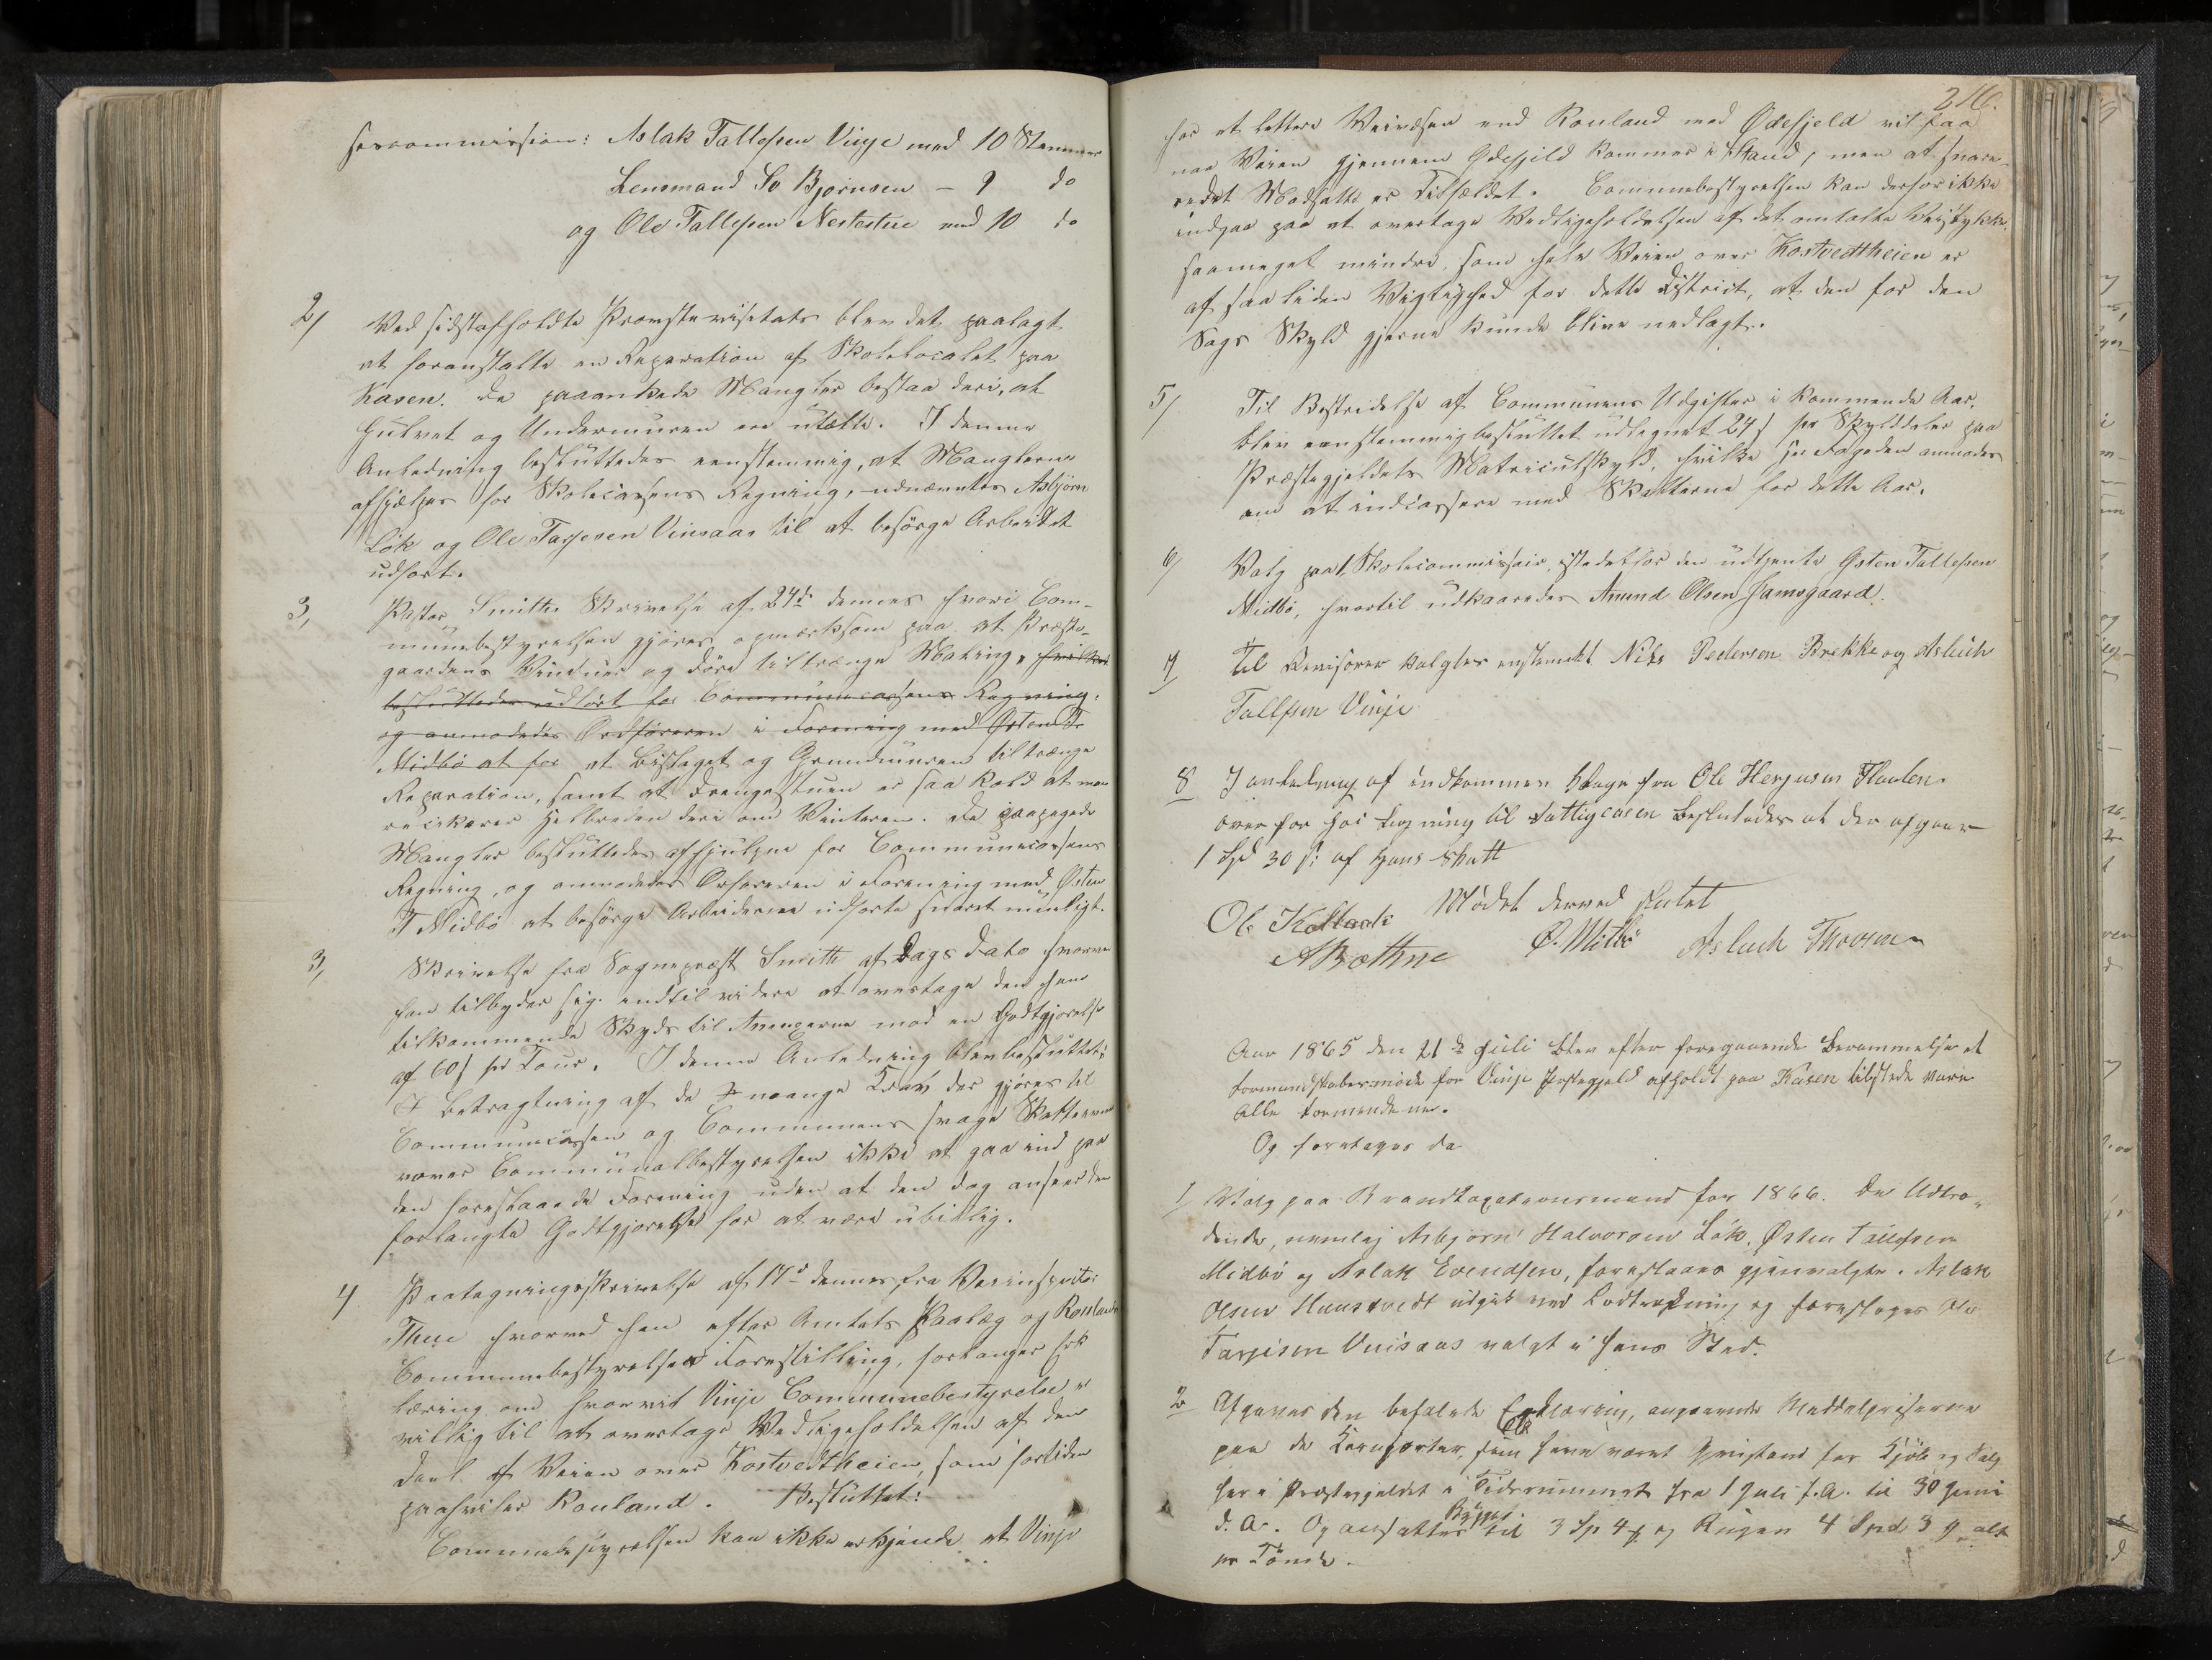 sorcommission: Aslak Tallefsen Vinje med 10 Stemmer
Lensmand So Bjørnsen - 9 do
og Ole Tallefsen Nestestue med 10 do
2/ Ved sidstafholdte Provstevisitats blev det paalagt
at foranstalte en Reparation af Skolelocalet paa
Kaasen. De paaankede Mangler bestaa deri, at
Gulvet og Undermuren ere utætte. I denne
Anledning besluttedes eenstemmig, at Manglerne
afhjælpes for Skolecassens Regning, udnævntes Asbjørn
Løk og Ole Tarjesen Vinsaas til at besørge Arbeidet
udført.
3, Pastor Smiths Skrivelse af 24de dennes hvori Com-
munebestyrelsen gjøres opmærksom paa at Præste-
gaardens Vinduer og Døre tiltrænge Maling, hvilket
besluttedes udført for Communecassens Regning,
og anmodedes Ordføreren i Forening med Østen T.
Midbø at for at Bislaget og Grundmuren tiltrænge
Reparation, samt at Drengestuen er saa kold at man
rescikerer Helbreden deri om Vinteren. De paapegede
Mangler besluttedes afhjulpne for Communecassens
Regning, og anmodedes Orføreren i Forening med Østen
T Midbø at besørge Arbeiderne udførte snarest muligt.
3, Skrivelse fra Sognepræst Smith af Dags Dato hvorved
han tilbyder sig indtil videre at overtage den ham
tilkommende Skyds til Annexerne mod en Godtgjørelse
af 60 s pr Tour. I denne Anledning blev besluttet:
I Betragtning af de mange Krav der gjøres til
Communecassen og Communens svage Skatteevne
vover Communalbestyrelsen ikke at gaa ind paa
den foreslaaede Forening uden at den dog anseer den
forlangte Godtgjørelse for at være ubillig.
4 Paategningsskrivelse af 17de dennes fra Veiinspector
Thue hvorved han efter Amtets Paalæg og Raulands
Communebestyrelses Forestilling, forlanger Erk
læring om hvorvidt Vinje Communebestyrelse er
villig til at overtage Vedligeholdelsen af den
Deel af Veien over Kostvedtheien, som fortiden
paahviler Rauland. Besluttet:
Communebestyrelsen kan ikke erkjende at Vinje
216.
har et lettere Veivæsen end Rauland med Ødefjeld vil faa
naar Veien gjennem Ødefjeld kommer i Stand, men at snare-
redet Modsatte er Tilfældet. Communebestyrelsen kan derfor ikke
indgaa paa at overtage Vedligeholdelsen af det omtalte Veistykke,
saameget mindre, som hele Veien over Kostvedtheien er
af saa liden Vigtighed for dette District, at den for den
Sags Skyld gjerne kunde blive nedlagt.
5/ Til Bestridelse af Communens Udgifter i kommende Aar,
blev eenstemmig besluttet udlignet 24 s pr Skylddaler paa
Præstegjeldets Matriculskyld, hvilke Hr Fogden anmodes
om at indcassere med Skatterne for dette Aar.
6/ Valg paa 1 Skolecommissair istedetfor den udtjente Østen Tallefsen
Midbø, hvortil udkaaredes Anund Olsen Hamsgaard.
7 Til Revisorer valgtes enstemmigt Nils Pedersen Brekke og Asluch
Tallfsen Vinje
8 I anledning af indkommen klage fra Ole Herjusen Flaaten
over for høi Ligning til Fattigcasen besluttedes at der afgaar
1 Spd 30 s: af hans Skatt
Mødet derved sluttet
Ole Kostveit Ø. Midbø Asluch Thorsen
A Bøthne
Aar 1865 den 21de Juli blev efter foregaaende berammelse et
Formandskabsmøde for Vinje Prestegjeld afholdt paa Kasen tilstede vare
alle Formændene.
Og foretoges da
1/ Valg paa Brandtaxationsmænd for 1866. De Udtræ-
dende, nemlig Asbjørn Halvorsen Løk, Østen Tallefsen
Midbø og Aslak Evendsen, foreslaaes gjenvalgte. Aslak
Olsen Haustvedt udgik ved Lodtrækning og foresloges Ole
Tarjesen Vinsaas valgt i hans Sted.
2 Afgaves den befalede Erklæring, angaaende Middelpriserne
paa de Kornsorter, som have været Gjenstand for Kjøb og Salg
her i Præstegjeldet i Tidsrummet fra 1 Juli f.A. til 30 Juni
d. A. Og ansattes Bygget til 3 Sp 4 og Rugen 4 Spd 3 alt
pr Tønde.